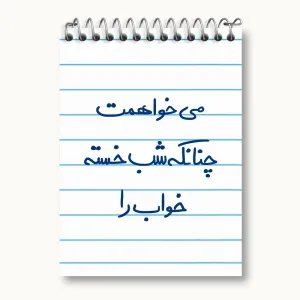 می‌خواهمت
چنانکه شب خسته
خواب را